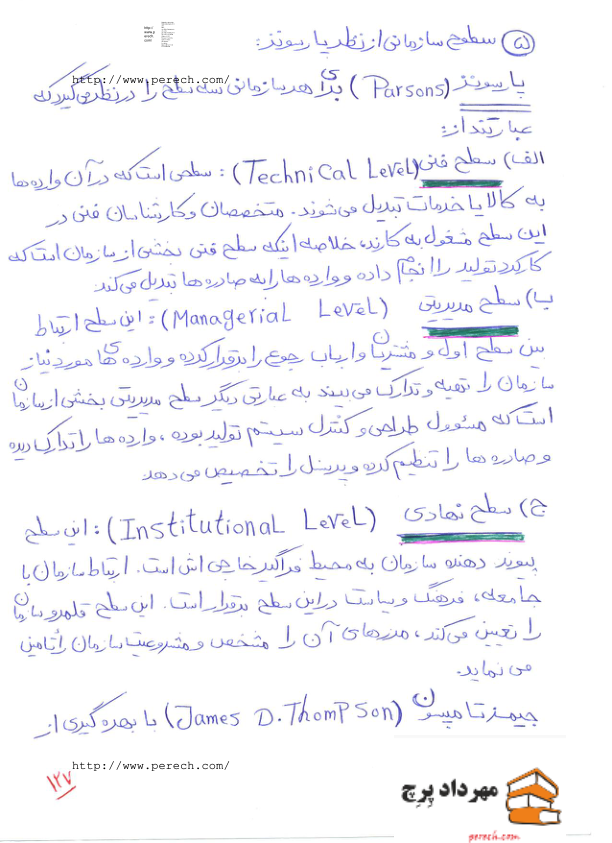 ۵) سطوح سازمانی از نظر پارسونز:
http://www.perech.com/
پارسونز (Parsons) برای هر سازمانی سه سطح را در نظر می‌گیرد که
عبارتند از:
الف) سطح فنی (Technical Level): سطحی است که در آن واردها
به کالا یا خدمات تبدیل می‌شوند. متخصصان و کارشناسان فنی در
این سطح مشغول به کارند، خلاصه اینکه سطح فنی بخشی از سازمان است که
کارکرد تولید را انجام داده و وارده‌ها را به صادره‌ها تبدیل می‌کند
ب) سطح مدیریتی (Managerial Level): این سطح ارتباط
بین سطح اول و مشتریان و ارباب رجوع را برقرار کرده و وارده‌های مورد نیاز
سازمان را تهیه و تدارک می‌بیند به عبارتی دیگر سطح مدیریتی بخشی از سازمان
است که مسؤول طراحی و کنترل سیستم تولید بوده، وارده‌ها را تدارک دیده
و صادره‌ها را تنظیم کرده و پرسنل را تخصیص می‌دهد.
ج) سطح نهادی (Institutional Level): این سطح
پیوند دهنده سازمان به محیط فراگیر خارجی اش است. ارتباط سازمان با
جامعه، فرهنگ و سیاست در این سطح برقرار است. این سطح قلمرو سازمان
را تعیین می‌کند، مرزهای آن را مشخص و مشروعیت سازمان را تامین
می نماید.
جیمز تامپسون (James D. Thompson) با بهره گیری از
http://www.perech.com/
۱۲۷
مهرداد پرچ
perech.com